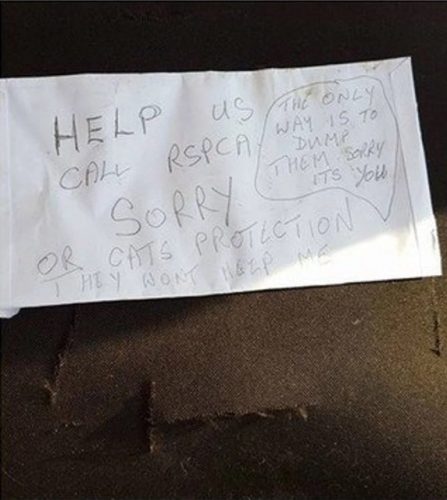 HELP US
CALL RSPCA
SORRY
OR CATS PROTECTION
THEY WONT HELP ME
THE ONLY
WAY IS TO
DUMP
THEM SORRY
ITS YOU